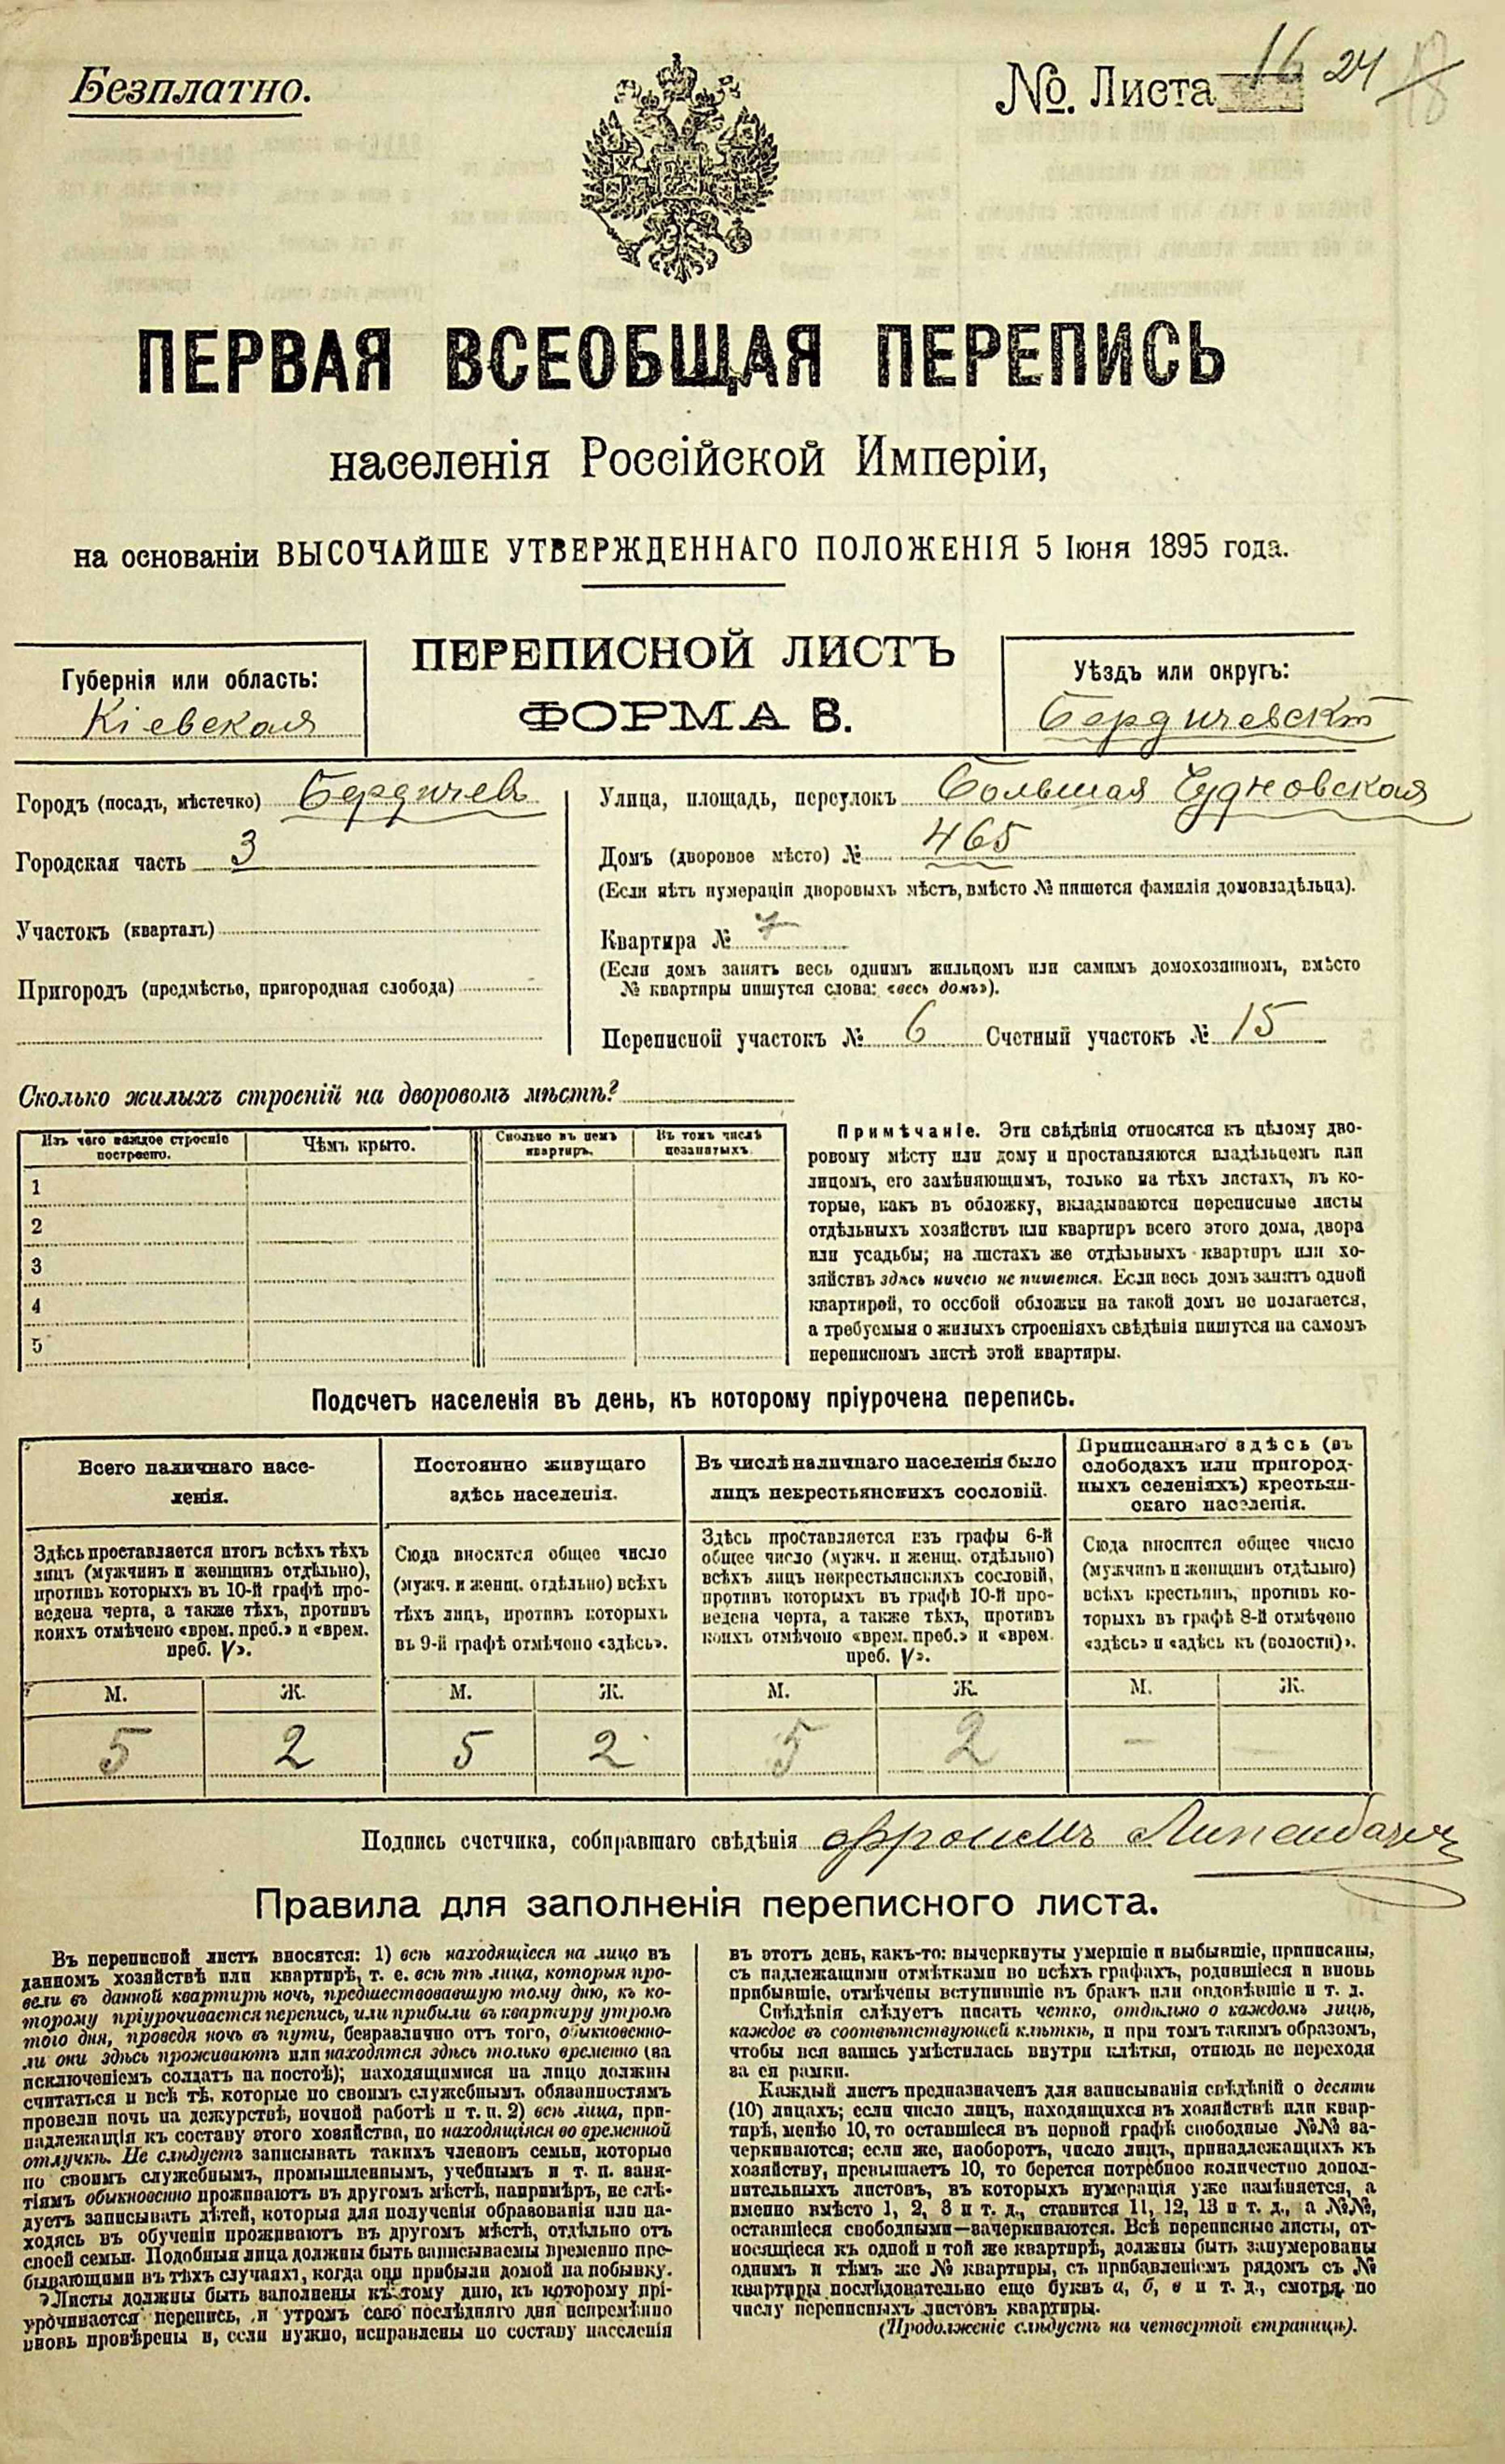 Безплатно.
№. Листа 16 24 18
ПЕРВАЯ ВСЕОБЩАЯ ПЕРЕПИСЬ
населенія Россійской Имперіи,
на основаніи ВЫСОЧАЙШЕ УТВЕРЖДЕННАГО ПОЛОЖЕНІЯ 5 Іюня 1895 года.
ПЕРЕПИСНОЙ ЛИСТЪ
ФОРМА В.
Губернія или область:
Кіевская
Уѣздъ или округъ:
Бердичевскт
Городъ (посадъ, мѣстечко) Бердичев
Городская часть 3
Участокъ (кварталъ)
Пригородъ (предмѣстье, пригородная слобода)
Улица, площадь, переулокъ Большая Чудновская
Домъ (дворовое мѣсто) № 465
(Если нѣтъ нумераціи дворовыхъ мѣстъ, вмѣсто № пишется фамилія домовладѣльца).
Квартира № 7
(Если домъ занятъ весь однимъ жильцомъ или самимъ домохозяиномъ, вмѣсто
№ квартиры пишутся слова: «весь домъ»).
Переписной участокъ № 6 Счетный участокъ № 15
Сколько жилыхъ строеній на дворовомъ мѣстѣ?
Изъ чего каждое строеніе
построено.
Чѣмъ крыто.
Сколько въ немъ
квартиръ.
Въ томъ числѣ
незанятыхъ.
1
2
3
4
5
Примѣчаніе. Эти свѣдѣнія относятся къ цѣлому дво-
ровому мѣсту или дому и проставляются владѣльцемъ или
лицомъ, его замѣняющимъ, только на тѣхъ листахъ, въ ко-
торые, какъ въ обложку, вкладываются переписные листы
отдѣльныхъ хозяйствъ или квартиръ всего этого дома, двора
или усадьбы; на листахъ же отдѣльныхъ квартиръ или хо-
зяйствъ здѣсь ничего не пишется. Если весь домъ занятъ одной
квартирой, то особой обложки на такой домъ не полагается,
а требуемыя о жилыхъ строеніяхъ свѣдѣнія пишутся на самомъ
переписномъ листѣ этой квартиры.
Подсчетъ населенія въ день, къ которому пріурочена перепись.
Всего наличнаго насе-
ленія.
Здѣсь проставляется итогъ всѣхъ тѣхъ
лицъ (мужчинъ и женщинъ отдѣльно),
противъ которыхъ въ 10-й графѣ про-
ведена черта, а также тѣхъ, противъ
коихъ отмѣчено «врем. преб.» и «врем.
преб. V».
М. Ж.
5 2
Постоянно живущаго
здѣсь населенія.
Сюда вносятся общее число
(мужч. и женщ. отдѣльно) всѣхъ
тѣхъ лицъ, противъ которыхъ
въ 9-й графѣ отмѣчено «здѣсь».
М. Ж.
5 2
Въ числѣ наличнаго населенія было
лицъ некрестьянскихъ сословій.
Здѣсь проставляется изъ графы 6-й
общее число (мужч. и женщ. отдѣльно)
всѣхъ лицъ некрестьянскихъ сословій,
противъ которыхъ въ графѣ 10-й про-
ведена черта, а также тѣхъ, противъ
коихъ отмѣчено «врем. преб.» и «врем.
преб. V».
М. Ж.
5 2
Приписаннаго здѣсь (въ
слободахъ или пригород-
ныхъ селеніяхъ) крестьян-
скаго населенія.
Сюда вносится общее число
(мужчинъ и женщинъ отдѣльно)
всѣхъ крестьянъ, противъ ко-
торыхъ въ графѣ 8-й отмѣчено
«здѣсь» и «здѣсь къ (волости)».
М. Ж.
—
Подпись счетчика, собиравшаго свѣдѣнія Фроимъ
Правила для заполненія переписного листа.
Въ переписной листъ вносятся: 1) всѣ находящіеся на лицо въ
данномъ хозяйствѣ или квартирѣ, т. е. всѣ тѣ лица, которыя про-
вели въ данной квартирѣ ночь, предшествовавшую тому дню, къ ко-
торому пріурочивается перепись, или прибыли въ квартиру утромъ
того дня, проведя ночь въ пути, безразлично отъ того, обыкновенно-
ли они здѣсь проживаютъ или находятся здѣсь только временно (за
исключеніемъ солдатъ на постоѣ); находящимися на лицо должны
считаться и всѣ тѣ, которые по своимъ служебнымъ обязанностямъ
провели ночь на дежурствѣ, ночной работѣ и т. п. 2) всѣ лица, при-
надлежащія къ составу этого хозяйства, но находящіяся во временной
отлучкѣ. Не слѣдуетъ записывать такихъ членовъ семьи, которые
по своимъ служебнымъ, промышленнымъ, учебнымъ и т. п. заня-
тіямъ обыкновенно проживаютъ въ другомъ мѣстѣ, напримѣръ, не слѣ-
дуетъ записывать дѣтей, которыя для полученія образованія или на-
ходясь въ обученіи проживаютъ въ другомъ мѣстѣ, отдѣльно отъ
своей семьи. Подобныя лица должны быть записываемы временно пре-
бывающими въ тѣхъ случаяхъ, когда они прибыли домой на побывку.
Листы должны быть заполнены къ тому дню, къ которому прі-
урочивается перепись, и утромъ сего послѣдняго дня непремѣнно
вновь провѣрены и, если нужно, исправлены по составу населенія
въ этотъ день, какъ-то: вычеркнуты умершіе и выбывшіе, приписаны,
съ надлежащими отмѣтками во всѣхъ графахъ, родившіеся и вновь
прибывшіе, отмѣчены вступившіе въ бракъ или овдовѣвшіе и т. д.
Свѣдѣнія слѣдуетъ писать четко, отдѣльно о каждомъ лицѣ,
каждое въ соотвѣтствующей клѣткѣ, и при томъ такимъ образомъ,
чтобы вся запись умѣстилась внутри клѣтки, отнюдь не переходя
за ея рамки.
Каждый листъ предназначенъ для записыванія свѣдѣній о десяти
(10) лицахъ; если число лицъ, находящихся въ хозяйствѣ или квар-
тирѣ, менѣе 10, то оставшіеся въ первой графѣ свободные №№ за-
черкиваются; если же, наоборотъ, число лицъ, принадлежащихъ къ
хозяйству, превышаетъ 10, то берется потребное количество допол-
нительныхъ листовъ, въ которыхъ нумерація уже измѣняется, а
именно вмѣсто 1, 2, 3 и т. д., ставится 11, 12, 13 и т. д., а №№,
оставшіеся свободными—зачеркиваются. Всѣ переписные листы, от-
носящіеся къ одной и той же квартирѣ, должны быть занумерованы
однимъ и тѣмъ же № квартиры, съ прибавленіемъ рядомъ съ №
квартиры послѣдовательно еще буквъ а, б, в и т. д., смотря по
числу переписныхъ листовъ квартиры.
(Продолженіе слѣдуетъ на четвертой страницѣ).